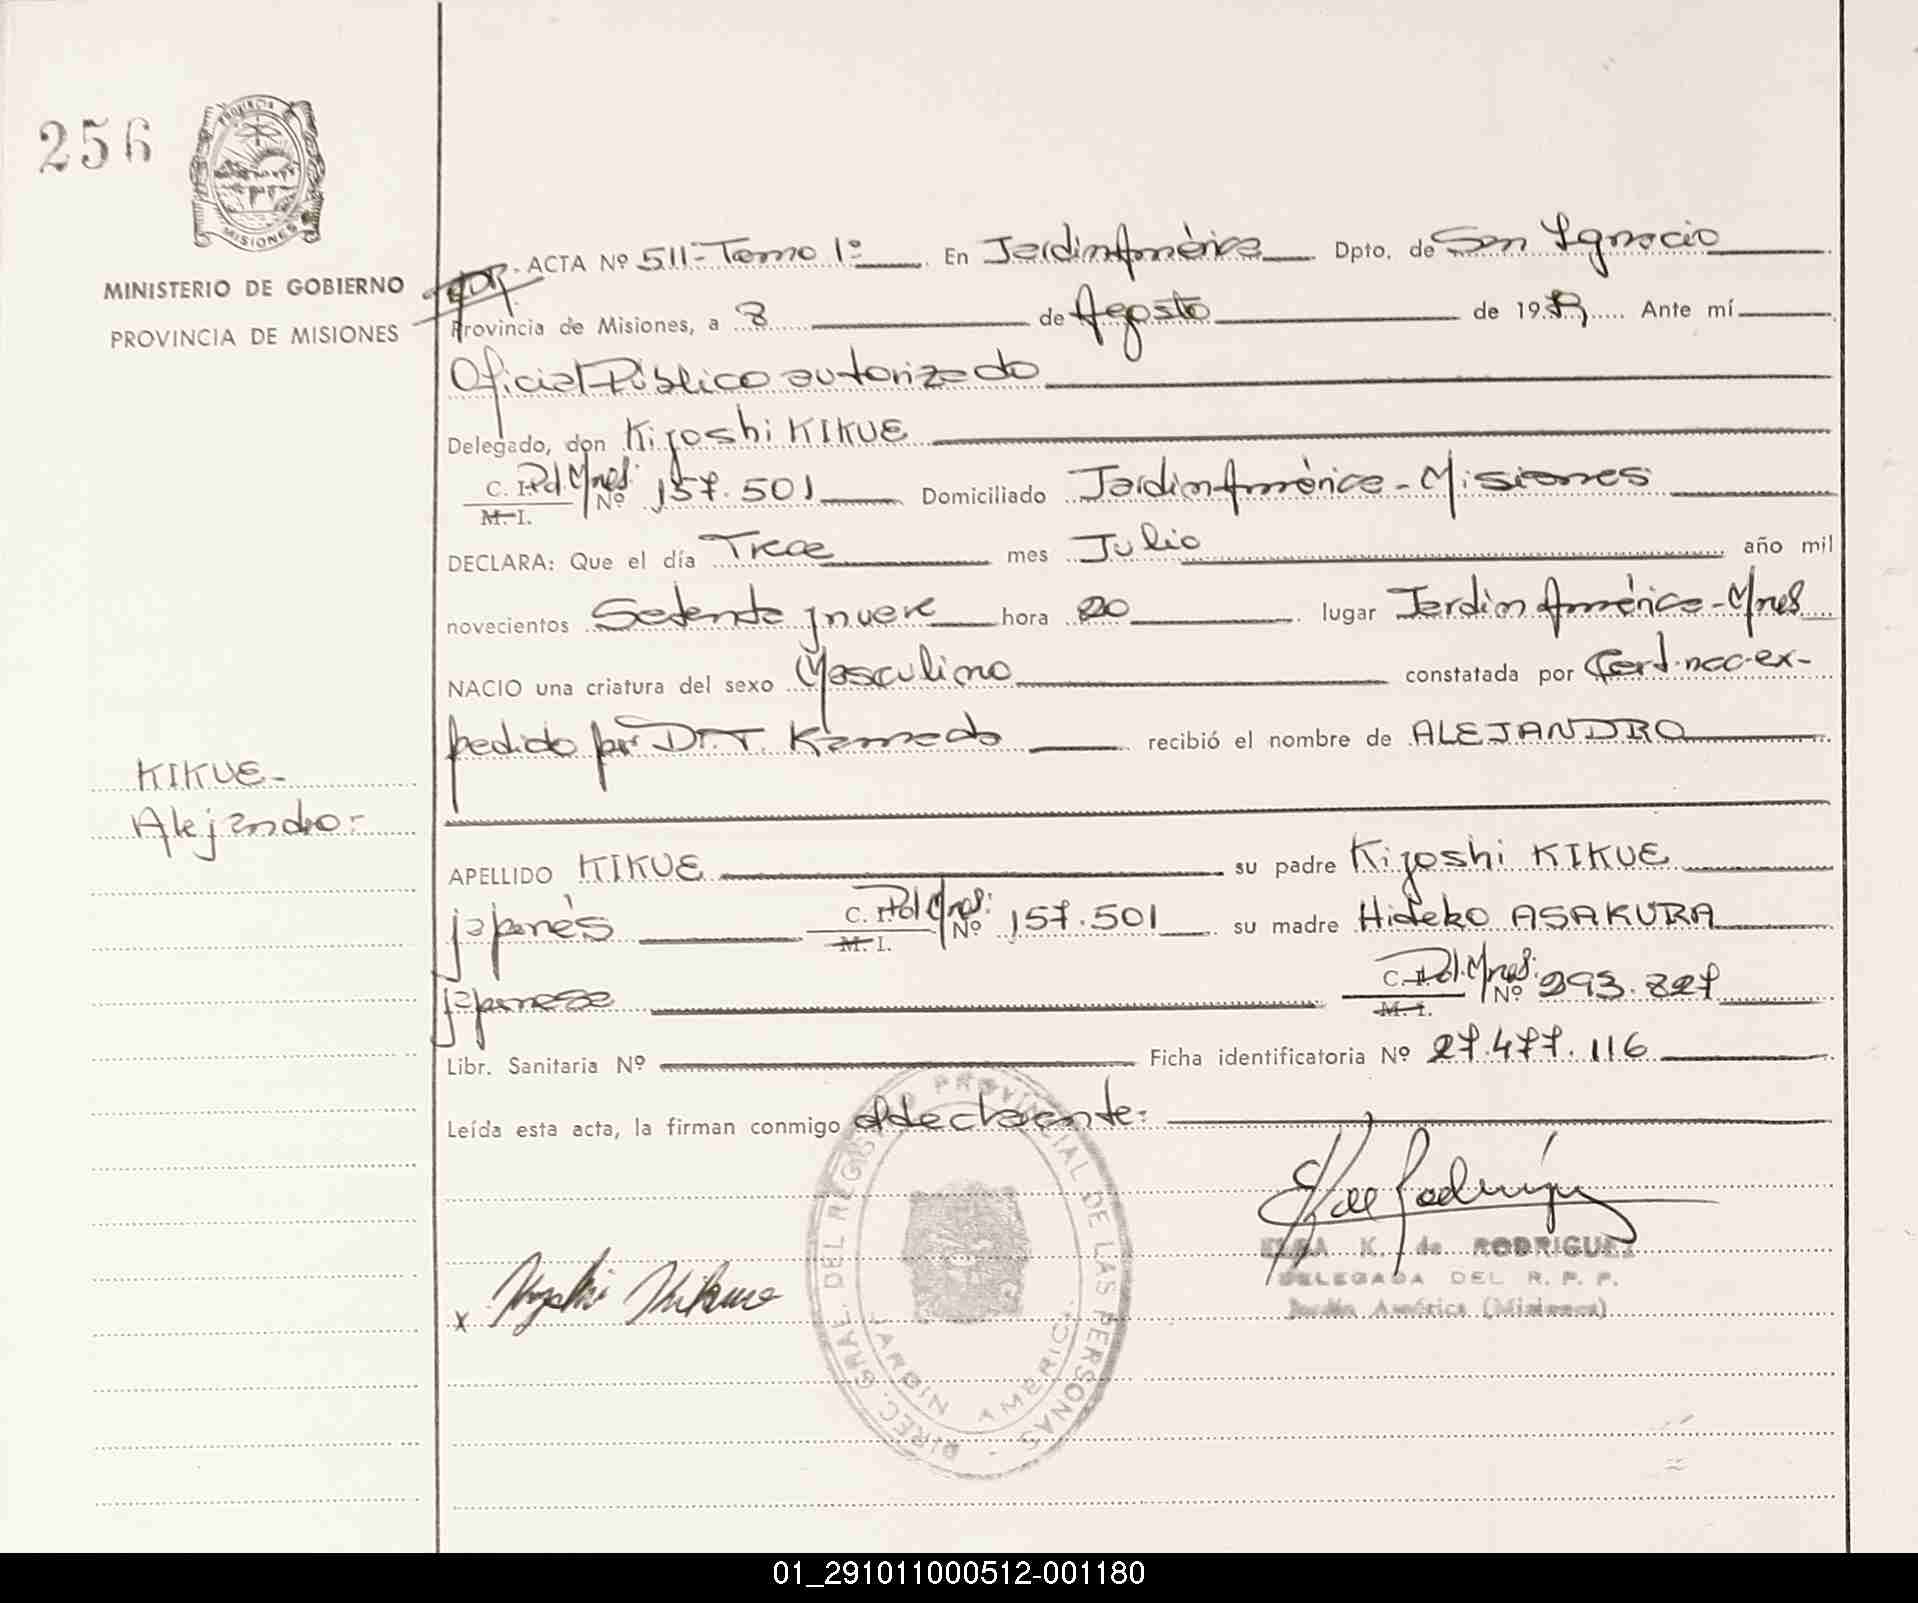 256
PROVINCIA
MISIONES
MINISTERIO DE GOBIERNO
PROVINCIA DE MISIONES
ACTA Nº 511-Tomo 1º En Jardín América Dpto. de San Ignacio
Provincia de Misiones, a 8 de Agosto de 19 Ante mí
Oficial Público autorizado
Delegado, don Kiyoshi KIKUE
C. I. Pol. Mnes: Nº 157.501 Domiciliado Jardín América - Misiones
M. I.
DECLARA: Que el día Trece mes Julio año mil
novecientos Setenta y nueve hora 20 lugar Jardín América - Mnes
NACIO una criatura del sexo Masculino constatada por Cert. nac. ex-
pedido por Dr. T. Kameda recibió el nombre de ALEJANDRO
KIKUE-
Alejandro:
APELLIDO KIKUE su padre Kiyoshi KIKUE
japonés C. I. Pol. Mnes: Nº 157.501 su madre Hideko ASAKURA
M. I.
japonesa C. I. Pol. Mnes: Nº 293.827
M. I.
Libr. Sanitaria Nº Ficha identificatoria Nº 27.477.116
Leída esta acta, la firman conmigo el declarante:
DIREC. GRAL. DEL REGISTRO PROVINCIAL DE LAS PERSONAS -
JARDIN AMERICA
K. de RODRIGUEZ
DELEGADA DEL R. P. P.
Jardín América (Misiones)
x Kiyoshi Kikue
01_291011000512-001180